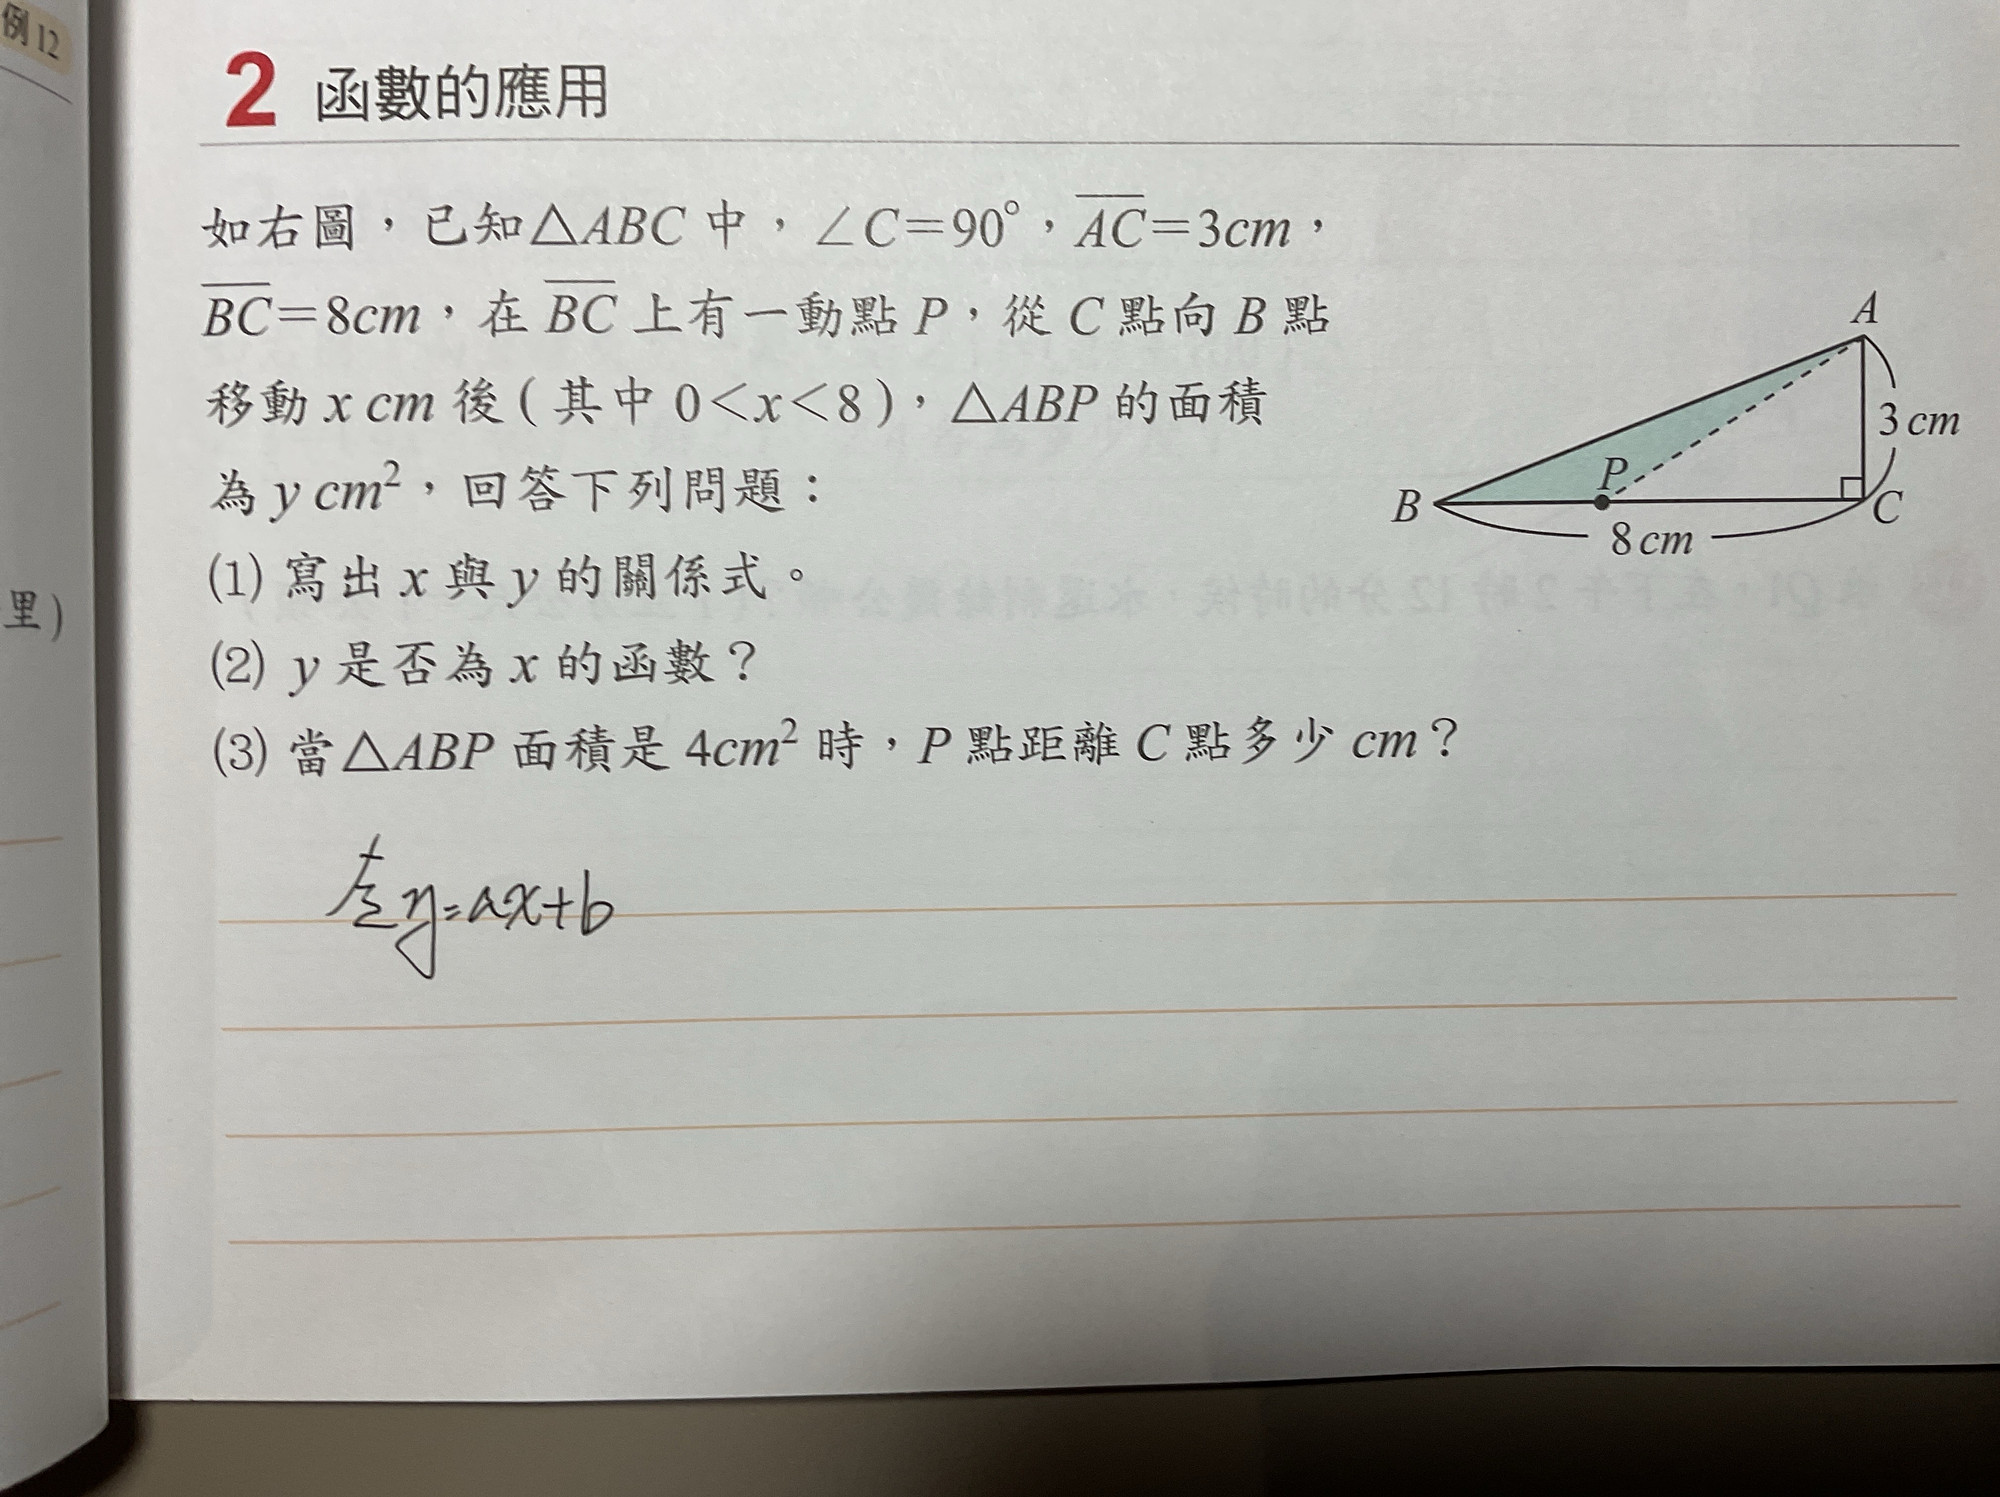 例12
里)
2 函數的應用
如右圖，已知△ABC 中，∠C＝90°，AC＝3cm，
BC＝8cm，在 BC 上有一動點 P，從 C 點向 B 點
移動 x cm 後 ( 其中 0＜x＜8 )，△ABP 的面積
為 y cm²，回答下列問題：
(1) 寫出 x 與 y 的關係式。
(2) y 是否為 x 的函數？
(3) 當△ABP 面積是 4cm² 時，P 點距離 C 點多少 cm？
A
3 cm
P
B
C
8 cm
y=ax+b